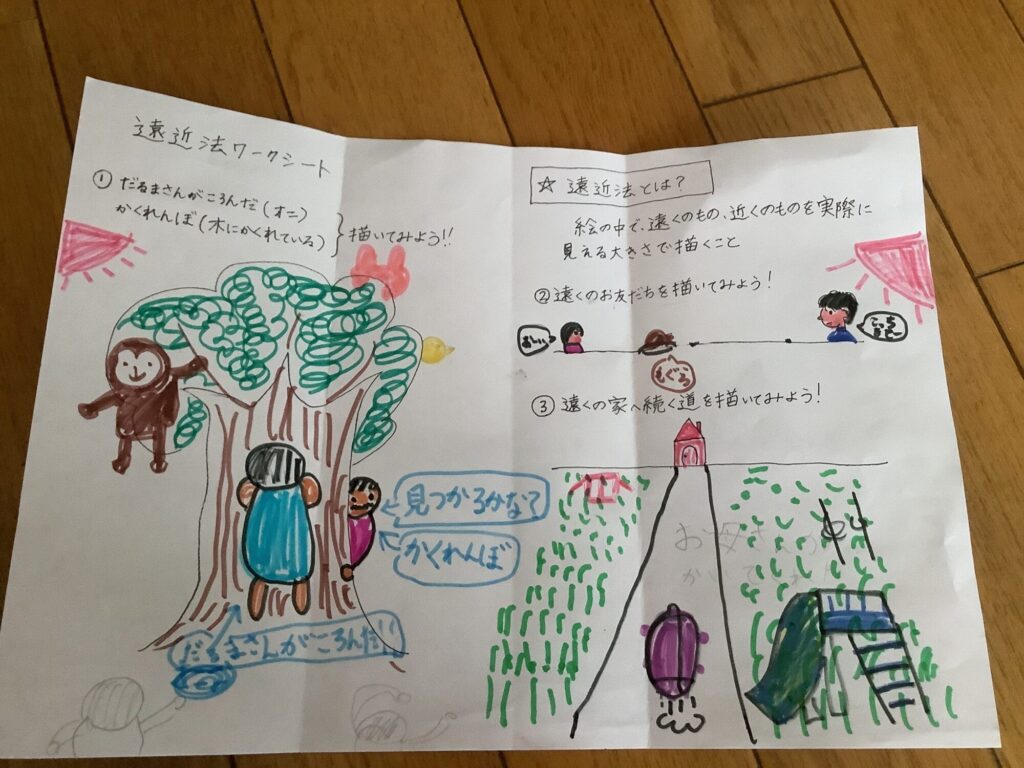 遠近法ワークシート
① だるまさんがころんだ(オニ)
かくれんぼ(木にかくれている)
描いてみよう!!
見つかるかなて
かくれんぼ
だるまさんがころんだ!!
☆ 遠近法とは?
絵の中で、遠くのもの、近くのものを実際に
見える大きさで描くこと
② 遠くのお友だちを描いてみよう!
おーい
もぐら
③ 遠くの家へ続く道を描いてみよう!
お母さんが